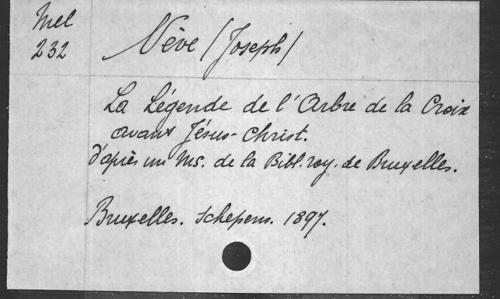 Mel
232
Nève (Joseph)
La Légende de l'Arbre de la Croix
avant Jésus-Christ.
d'après un Ms. de la Bibl. roy. de Bruxelles.
Bruxelles. Schepens. 1897.